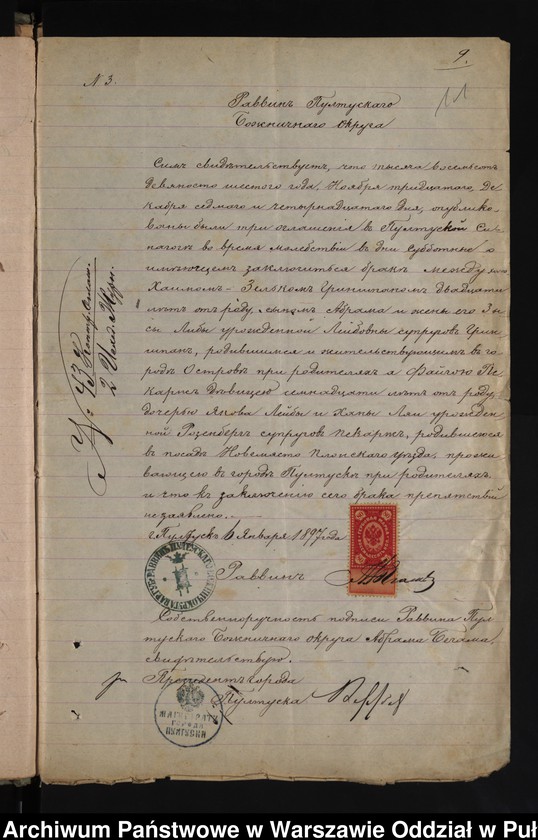 9.
N 3.
11
Раввинъ Пултускаго
Божничнаго округа
Симъ свидѣтельствуетъ, что тысяча восемьсотъ
девяносто шестого года, Ноября тридцатаго, Де-
кабря седмаго и четырнадцатаго дня, опублико-
ваны были три оглашенія въ Пултуской Си-
нагогѣ во время молебствій въ дни субботние о
имѣющемъ заключиться бракѣ между
Хаимомъ-Зелькомъ Гринштаномъ двадцати
лѣтъ отъ роду, сыномъ Абрама и жены его
Либы урожденной Лейбовны супруговъ Грин-
родившимся и жительствующимъ въ го-
родѣ Островѣ при родителяхъ а Файгою Пе-
каржъ Дѣвицею семнадцати лѣтъ отъ роду,
дочерью Якова Лейбы и Ханы Леи урожден-
ной Розенбергъ супруговъ Пекаржъ, родившеюся
въ посадѣ Новемясто Плонскаго уѣзда, прожи-
вающею въ городѣ Пултускѣ при родителяхъ
и что къ заключенію сего брака препятствій
не заявлено.
г. Пултускъ 6 Января 1897 года
Раввинъ
Собственноручность подписи Раввина Пул-
тускаго Божничнаго округа Абрама
свидѣтельствую.
Президентъ города
Пултуска
МАГИСТРАТЪ
ГОРОДА
Archiwum Państwowe w Warszawie Oddział w Puł